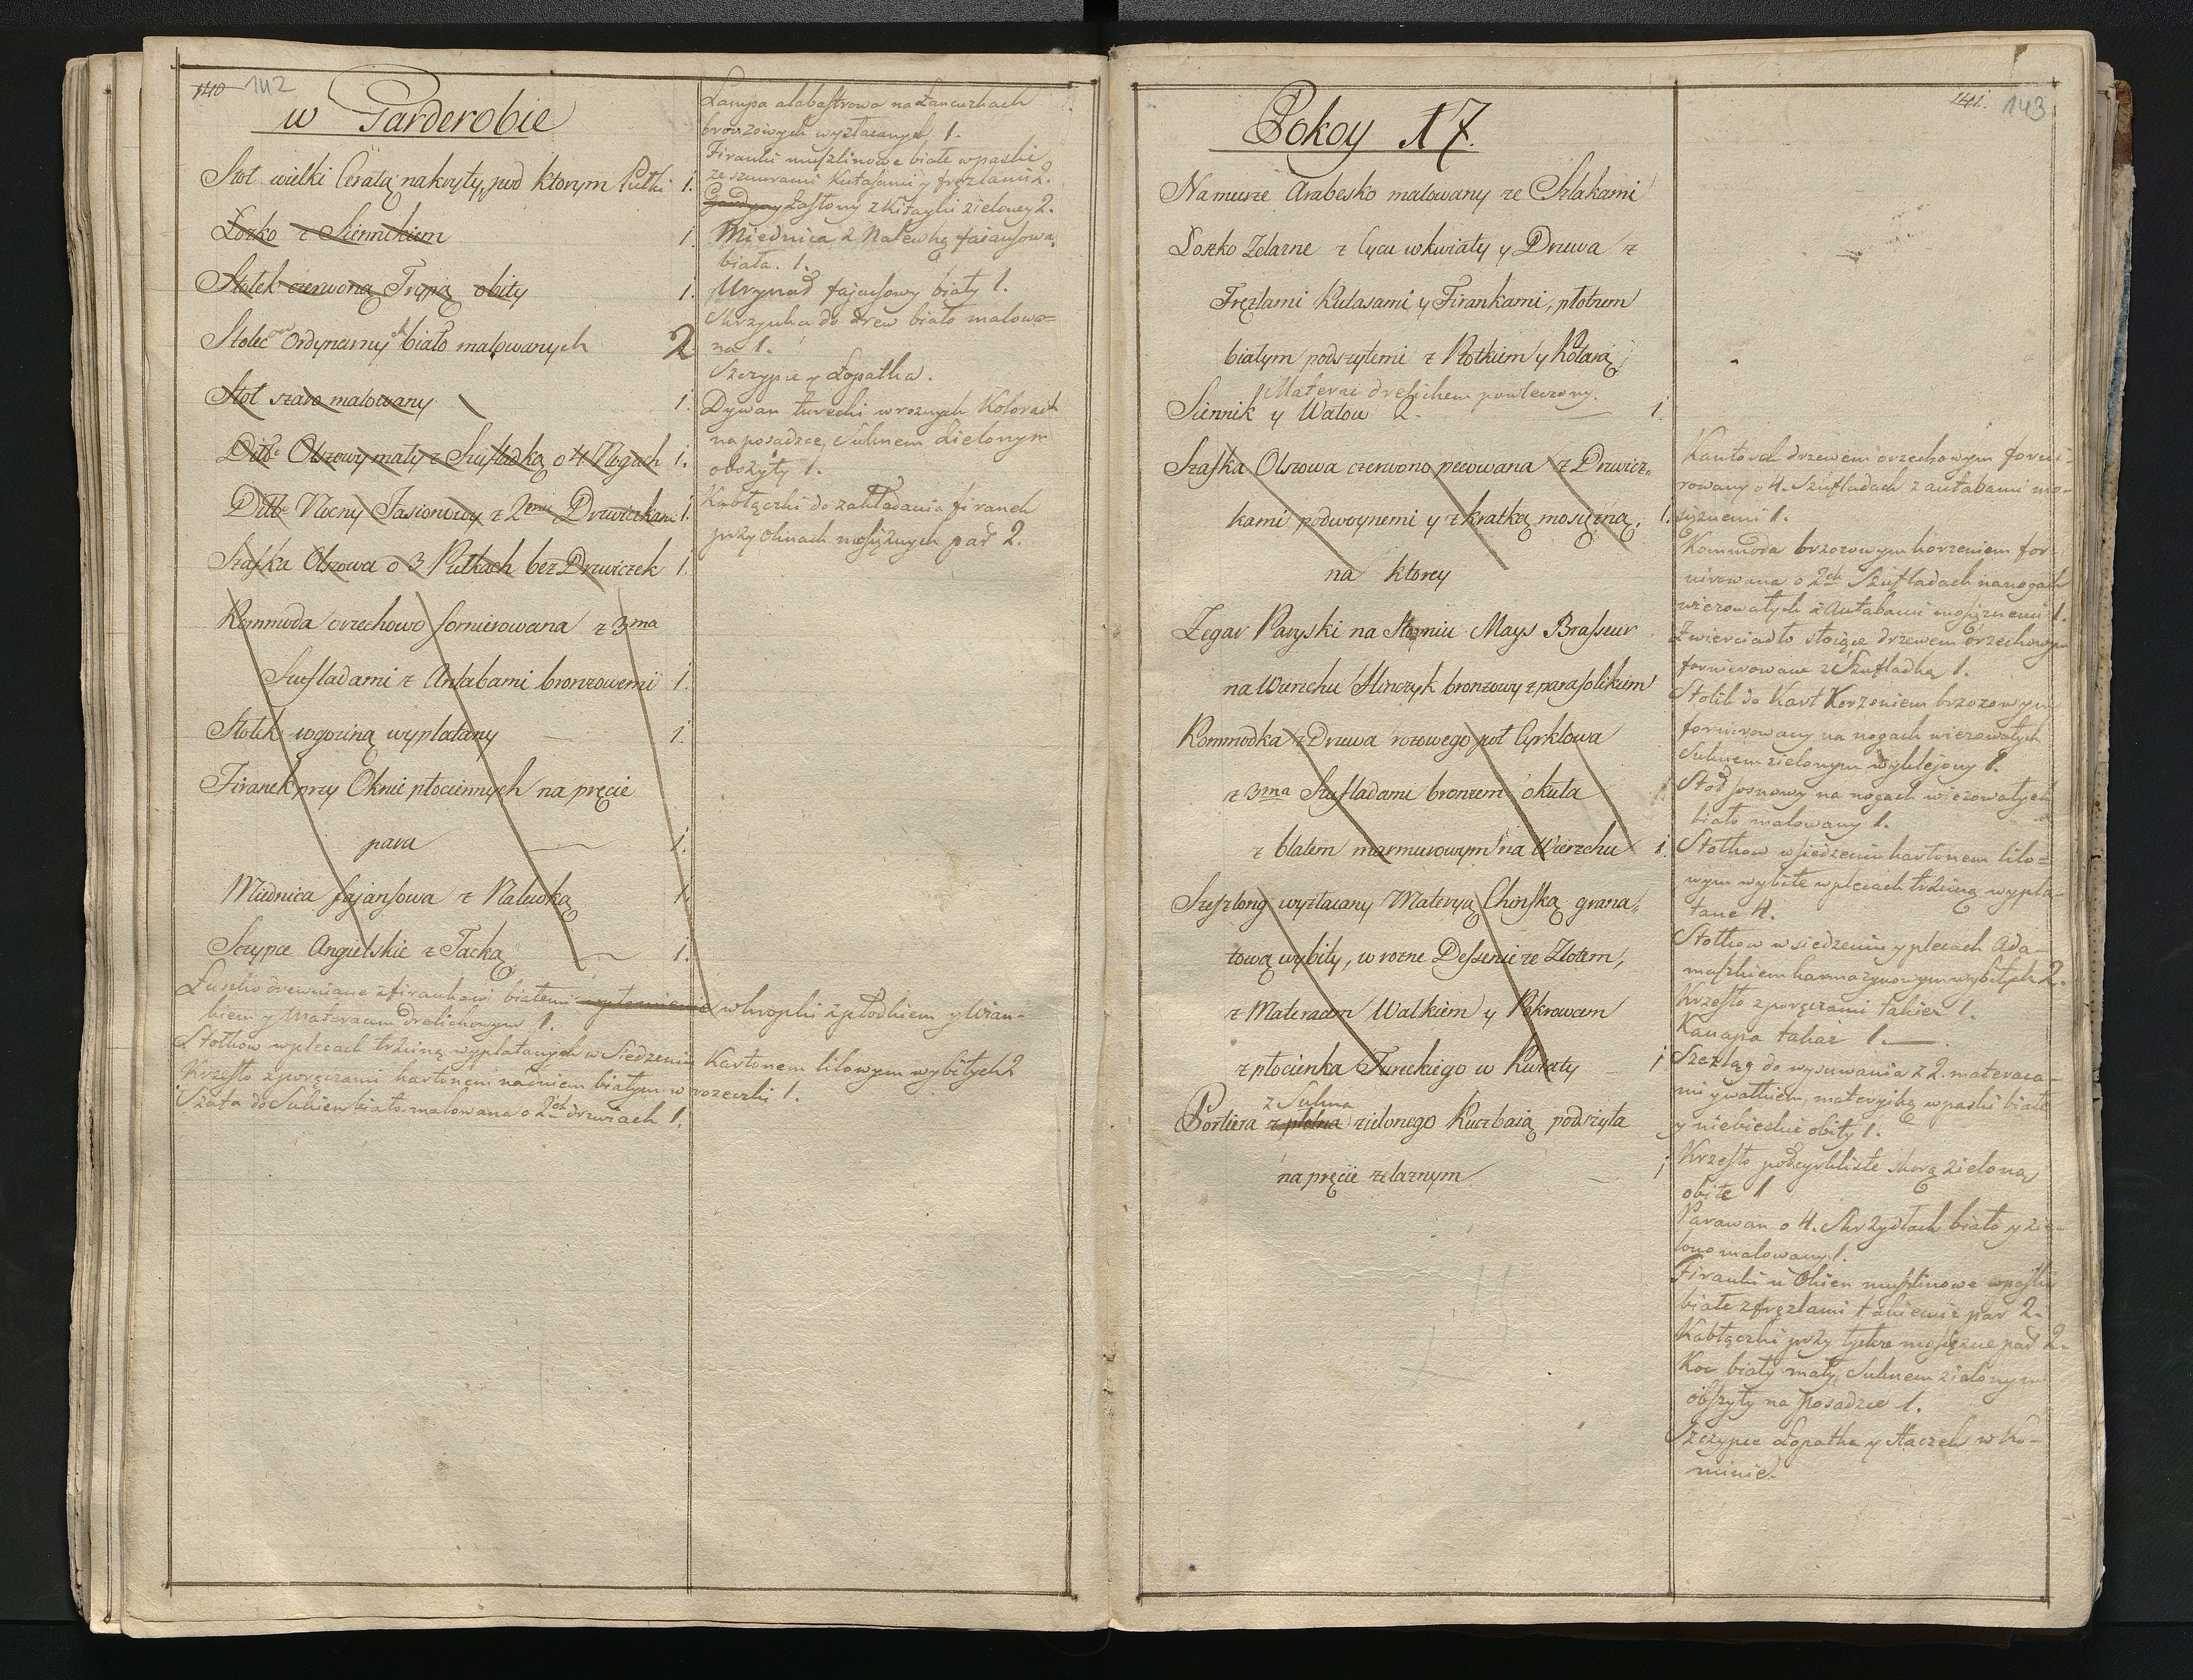 140 142
w Garderobie
Stoł wielki Ceratą nakryty, pod ktorym Pułki 1.
Łozko z Siennikiem 1.
Stołek czerwoną Trypą obity 1.
Stolec Ordynarny biało malowanych 2
Stoł szaro malowany 1.
Ditto Olszowy mały z Szufladką o 4 Nogach 1.
Ditto Nocny Jasionowy z 2ma Drzwiczkami 1.
Szafka Olszowa o 3 Pułkach bez Drzwiczek 1.
Kommoda orzechowo fornierowana z 3ma
Szufladami z Antabami bronzowemi 1.
Stołek rogoziną wyplatany 1.
Firanek przy Oknie płociennych na pręcie
para 1.
Miednica fajansowa z Nalewką 1.
Szczypce Angielskie z Tacką 1.
Łuszko drewniane z firankami białemi w kropki z płotkiem y Wian-
kiem y Materacem drelichowym 1.
Stołkow w plecach trzciną wyplatanych w Siedzeniu Kartonem lilowym wybitych 2
Krzesło z poręczami kartonem na dniem białym w rozeczki 1.
Szafa do Sukien biało malowana o 2ch drzwiach 1.
Lampa alabastrowa na Łancuzkach
bronzowych wyzłacanych 1.
Firanki muszlinowe białe w paski
ze sznurami Kutasami y fręzlami 2.
zasłony z Kitayki zieloney 2.
Miednica z Nalewką faiansowa
biała. 1.
Urynał fajansowy biały 1.
Skrzynka do drew biało malowa=
na 1.
Szczypce y Łopatka.
Dywan turecki w roznych Kolorach
na posadzce, Suknem Zielonym
obszyty 1.
Kabłączki do zakładania firanek
przy oknach mosiężnych par 2.
141. 143
Pokoy 17.
Na murze Arabesko malowany ze Szlakami
Łozko Zelazne z Cycu w kwiaty y Drzewa z
Fręzlami Kutasami y Firankami, płotnem
białym podszytemi z Płotkiem y Kołarą,
Materac drelichem powleczony.
Siennik y Wałow 2 1
Szafka Olszowa czerwono pecowana z Drzwicz„
kami podwoynemi y z kratką mosiężną, 1.
na ktorey
Zegar Paryski na StęPniu Mays Brasseur
na Wierzchu Hinczyk bronzowy z parasolikiem
Kommodka z Drzewa rozowego poł Cyrklowa
z 3ma Szufladami bronzem okuta
z blatem marmurowym na Wierzchu 1.
Szeszlong wyzłacany Materyą Chinską grana„
tową wybity, w rozne Dessenie ze Złotem,
z Materacem Wałkiem y Pokrowcem
z płocienka Tureckiego w Kwiaty 1
z Sukna
Portiera z płotna zielonego Kuczbaią podszyta
na pręcie zelaznym 1
Kantorek drzewem orzechowym forni=
rowany o 4. Szufladach z antabami mo-
siężnemi 1.
Kommoda brzozowym korzeniem for-
nirowana o 2ch Szufladach na nogach
wiezowatych z Antabami mosiężnemi 1.
Zwierciadło stojące drzewem orzechowym
fornierowane z Szufladką 1.
Stolik do Kart Korzeniem brzozowym
fornirowany na nogach wiezowatych
Suknem zielonym wyklejony 1.
Stoł sosnowy na nogach wiezowatych
biało malowany 1.
Stołkow w siedzeniu kartonem lilo=
wym wybite w plecach trzciną wypla-
tane 4.
Stołkow w siedzeniu y plecach Ada-
maszkiem karmazynowym wybitych 2.
Krzesło z poręczami takież 1.
Kanapa takaż 1.
Szezląg do wysuwania z 2. materaca-
mi y wałkiem, materyiką w paski białe
y niebieskie obity 1.
Krzesło połcyrkliste skorą zieloną
obite 1
Parawan o 4. Skrzydłach biało y zie-
lono malowany 1.
Firanki u Okien muszlinowe w paski
białe z fręzlami takiemiż par 2.
Kabłączki przy tychże mosiężne par 2.
Koc biały mały, Suknem zielonym
obszyty na posadzce 1.
Szczypce Łopatka y Haczek w ko-
minie.